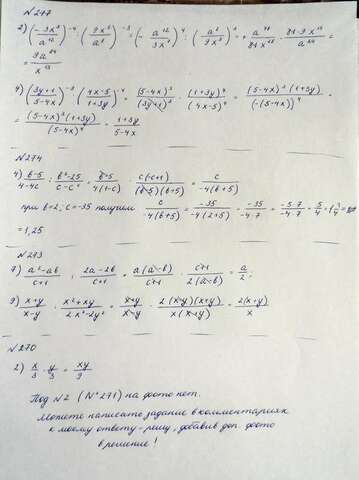 №277
2) (-3x³/a¹²)⁻⁴ · (9x⁵/a⁸)⁻³ = (-a¹²/3x³)⁴ · (a⁸/9x⁵)³ =
= 9a²⁴/x¹³
4) (3y+1/5-4x)⁻³ · (4x-5/1+3y)⁻⁴ = (5-4x)³/(3y+1)³ · (1+3y)⁴/(4x-5)⁴ = (5-4x)³(1+3y)/(-(5-4x))⁴ =
= (5-4x)³(1+3y)/(5-4x)⁴ = 1+3y/5-4x
№274
4) b-5/4-4c : b²-25/c-c² = b-5/4(1-c) · c(1-c)/(b-5)(b+5) = c/4(b+5)
при b=2; c=-35 получим c/-4(b+5) = -35/-4(2+5) = -35/-4·7 = -5·7/-4·7 = 5/4 = 1 1/4 =
= 1,25
№273
7) a²-ab/c+1 : 2a-2b/c+1 = a(a-b)/c+1 · c+1/2(a-b) = a/2
9) x+y/x-y : x²+xy/2x²-2y² = x+y/x-y · 2(x-y)(x+y)/x(x+y) = 2(x+y)/x
№270
2) x/3 · y/3 = xy/9
Под №2 (№271) на фото нет.
Можете написать задание в комментариях
к моему ответу - решу, добавив доп. фото
в решение!